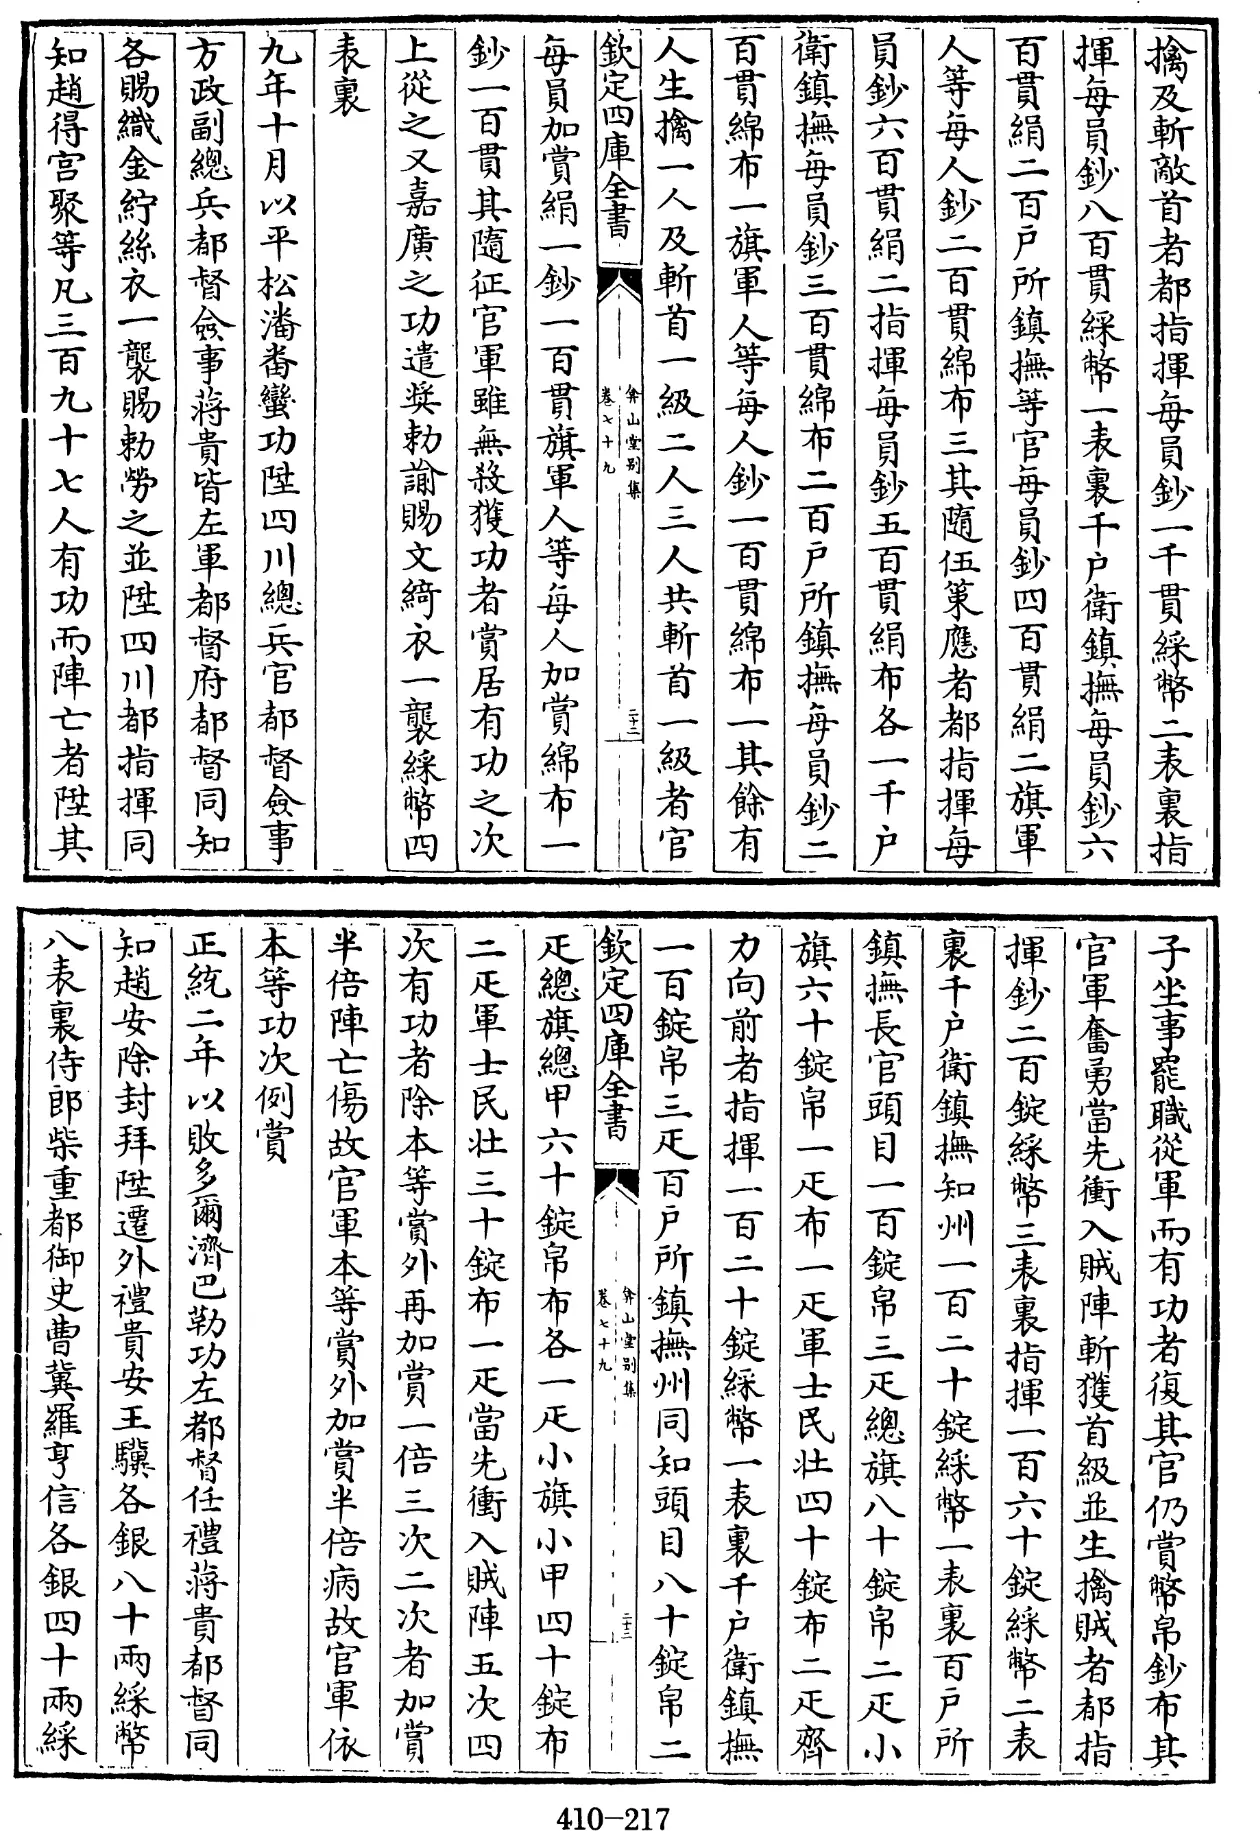 擒及斬敵首者都指揮每員鈔一千貫綵幣二表裏指
揮每員鈔八百貫綵幣一表裏千戶衛鎮撫每員鈔六
百貫絹二百戶所鎮撫等官每員鈔四百貫絹二旗軍
人等每人鈔二百貫綿布三其隨伍策應者都指揮每
員鈔六百貫絹二指揮每員鈔五百貫絹布各一千戶
衛鎮撫每員鈔三百貫綿布二百戶所鎮撫每員鈔二
百貫綿布一旗軍人等每人鈔一百貫綿布一其餘有
人生擒一人及斬首一級二人三人共斬首一級者官
欽定四庫全書
弇山堂別集
卷七十九
二十二
每員加賞絹一鈔一百貫旗軍人等每人加賞綿布一
鈔一百貫其隨征官軍雖無殺獲功者賞居有功之次
上從之又嘉廣之功遣奬勅諭賜文綺衣一襲綵幣四
表裏
九年十月以平松潘畨蠻功陞四川總兵官都督僉事
方政副總兵都督僉事蔣貴皆左軍都督府都督同知
各賜織金紵絲衣一襲賜勅勞之並陞四川都指揮同
知趙得宫聚等凡三百九十七人有功而陣亡者陞其
子坐事罷職從軍而有功者復其官仍賞幣帛鈔布其
官軍奮勇當先衝入賊陣斬獲首級並生擒賊者都指
揮鈔二百錠綵幣三表裏指揮一百六十錠綵幣二表
裏千戶衛鎮撫知州一百二十錠綵幣一表裏百戶所
鎮撫長官頭目一百錠帛三疋總旗八十錠帛二疋小
旗六十錠帛一疋布一疋軍士民壯四十錠布二疋齊
力向前者指揮一百二十錠綵幣一表裏千戶衛鎮撫
一百錠帛三疋百戶所鎮撫州同知頭目八十錠帛二
欽定四庫全書
弇山堂別集
卷七十九
二十二
疋總旗總甲六十錠帛布各一疋小旗小甲四十錠布
二疋軍士民壯三十錠布一疋當先衝入賊陣五次四
次有功者除本等賞外再加賞一倍三次二次者加賞
半倍陣亡傷故官軍本等賞外加賞半倍病故官軍依
本等功次例賞
正統二年以敗多爾濟巴勒功左都督任禮蔣貴都督同
知趙安除封拜陞遷外禮貴安王驥各銀八十兩綵幣
八表裏侍郎柴重都御史曹冀羅亨信各銀四十兩綵
410-217